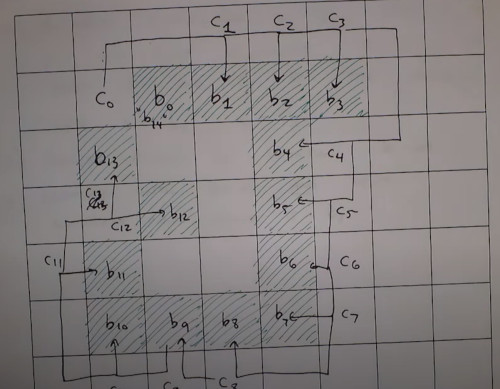 C₁ C₂ C₃
C₀ b₀ b₁ b₂ b₃
"b₁₄"
b₁₃ b₄ C₄
C₁₃
b₁₂ b₅ C₅
C₁₂
C₁₁ b₁₁ b₆ C₆
b₁₀ b₉ b₈ b₇ C₇
C₈